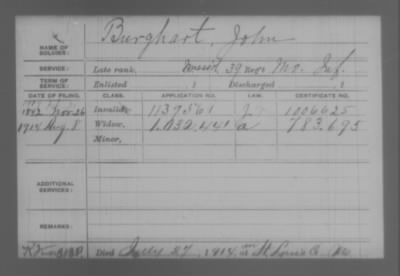 Burghart, John
NAME OF SOLDIER:
SERVICE: Late rank, 39 Reg't Mo. Inf.
TERM OF SERVICE: Enlisted , 1 Discharged , 1
DATE OF FILING. CLASS. APPLICATION NO. LAW. CERTIFICATE NO.
1892 Nov. 26 Invalid, 1139561 1006625
1914 Aug. 8 Widow, 1.032.441 a 783.695
Minor,
ADDITIONAL SERVICES:
REMARKS:
Died July 27, 1914 at St. Louis Co Mo